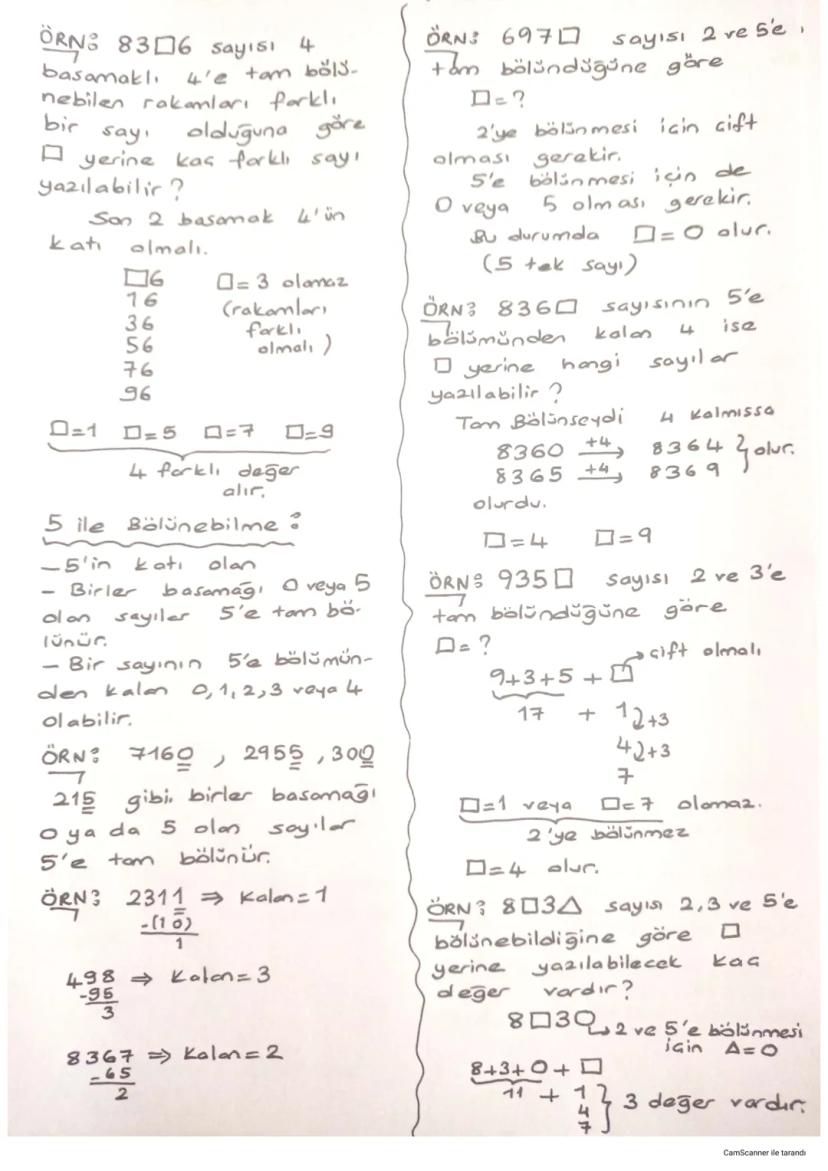 ÖRN: 83□6 sayısı 4
basamaklı 4'e tam bölü-
nebilen rakamları farklı
bir sayı olduğuna göre
□ yerine kaç farklı sayı
yazılabilir?
Son 2 basamak 4'ün
katı olmalı.
□6 □=3 olamaz
16 (rakamları
36 farklı
56 olmalı)
76
96
□=1 □=5 □=7 □=9
4 farklı değer
alır.
5 ile Bölünebilme:
– 5'in katı olan
– Birler basamağı 0 veya 5
olan sayılar 5'e tam bö-
lünür.
– Bir sayının 5'e bölümün-
den kalan 0,1,2,3 veya 4
olabilir.
ÖRN: 7160, 2955, 300
215 gibi. birler basamağı
0 ya da 5 olan sayılar
5'e tam bölünür.
ÖRN: 2311 ⇒ Kalan=1
-(10)
1
498 ⇒ Kalan=3
-95
3
8367 ⇒ Kalan=2
-65
2
ÖRN: 697□ sayısı 2 ve 5'e
tam bölündüğüne göre
□=?
2'ye bölünmesi için çift
olması gerekir.
5'e bölünmesi için de
0 veya 5 olması gerekir.
Bu durumda □=0 olur.
(5 tek sayı)
ÖRN: 836□ sayısının 5'e
bölümünden kalan 4 ise
□ yerine hangi sayılar
yazılabilir?
Tam Bölünseydi 4 kalmışsa
8360 +4→ 8364 } olur.
8365 +4→ 8369
olurdu.
□=4 □=9
ÖRN: 935□ sayısı 2 ve 3'e
tam bölündüğüne göre
□=?
9+3+5+□ → çift olmalı
17 + 1 ⤸+3
4 ⤸+3
7
□=1 veya □=7 olamaz.
2'ye bölünmez
□=4 olur.
ÖRN: 8□3△ sayısı 2,3 ve 5'e
bölünebildiğine göre □
yerine yazılabilecek kaç
değer vardır?
8□30 → 2 ve 5'e bölünmesi
için △=0
8+3+0+□
11 + 1
4 } 3 değer vardır.
7
CamScanner ile tarandı